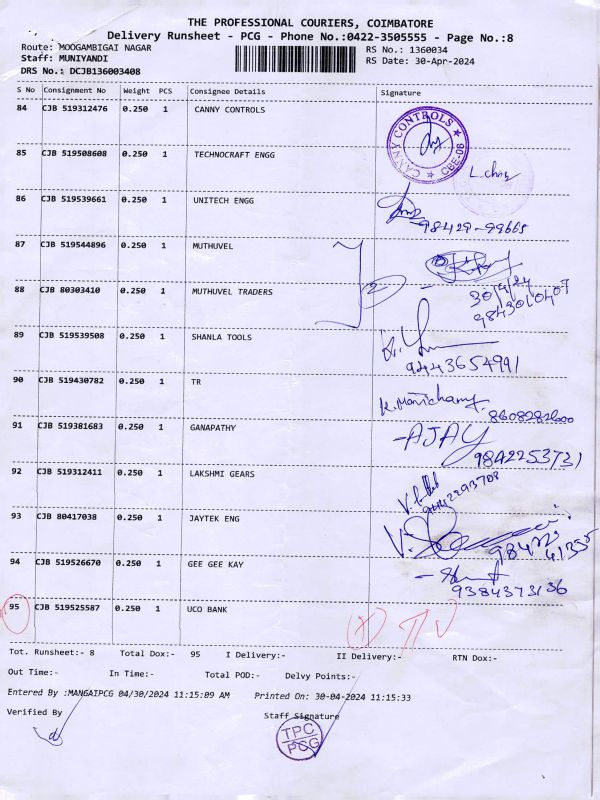 THE PROFESSIONAL COURIERS, COIMBATORE
Delivery Runsheet - PCG - Phone No.:0422-3505555 - Page No.:8
Route: MOOGAMBIGAI NAGAR
RS No.: 1360034
Staff: MUNIYANDI
RS Date: 30-Apr-2024
DRS No.: DCJB136003408
S No Consignment No Weight PCS Consignee Details Signature
84 CJB 519312476 0.250 1 CANNY CONTROLS
CANNY CONTROLS CBE-06
85 CJB 519508608 0.250 1 TECHNOCRAFT ENGG
86 CJB 519539661 0.250 1 UNITECH ENGG
98429-99665
87 CJB 519544896 0.250 1 MUTHUVEL
88 CJB 80303410 0.250 1 MUTHUVEL TRADERS
2
30/4/24
89 CJB 519539508 0.250 1 SHANLA TOOLS
9443654991
90 CJB 519430782 0.250 1 TR
K. Marichamy
91 CJB 519381683 0.250 1 GANAPATHY
-AJAY
9842253731
92 CJB 519312411 0.250 1 LAKSHMI GEARS
93 CJB 80417038 0.250 1 JAYTEK ENG
94 CJB 519526670 0.250 1 GEE GEE KAY
9384373136
95 CJB 519525587 0.250 1 UCO BANK
Tot. Runsheet:- 8 Total Dox:- 95 I Delivery:- II Delivery:- RTN Dox:-
Out Time:- In Time:- Total POD:- Delvy Points:-
Entered By :MANGAIPCG 04/30/2024 11:15:09 AM Printed On: 30-04-2024 11:15:33
Verified By Staff Signature
TPC
PCG